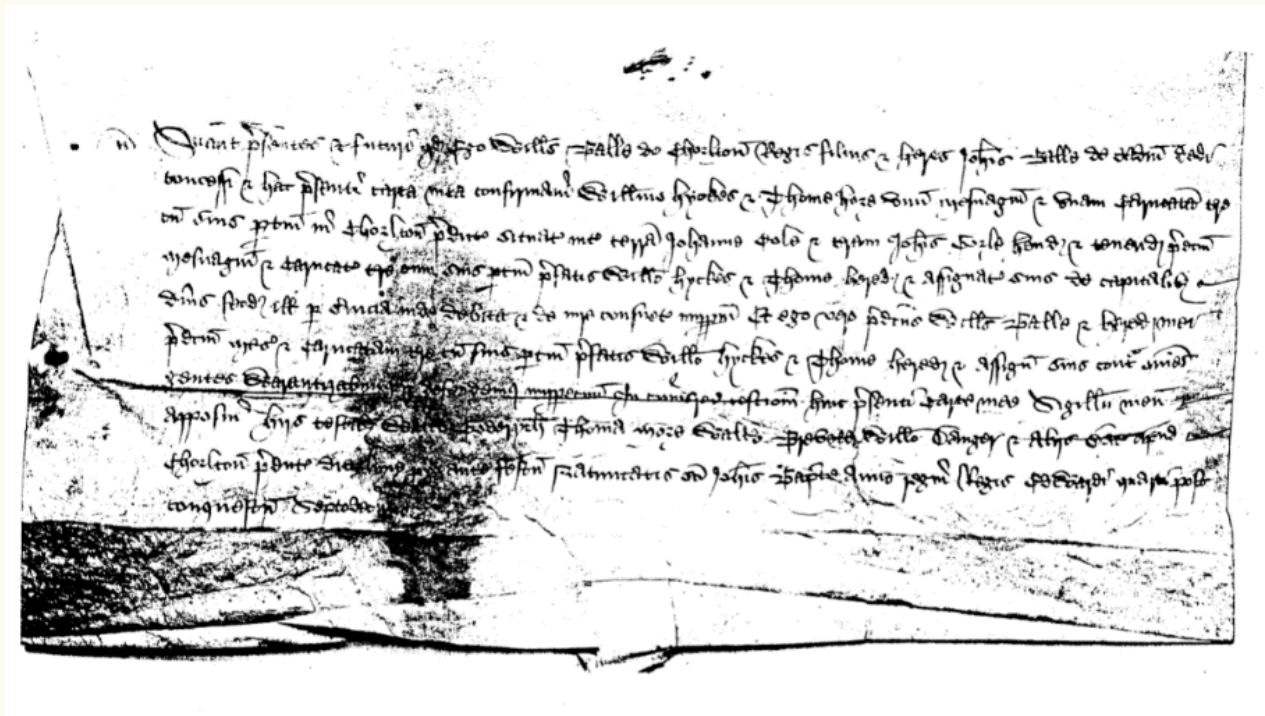 Sciant p'sentes & futuri qd Ego Wills Balle de Chorlton Regis filius & heres Joh'is Balle de eadm dedi
concessi & hac p'senti carta mea confirmavi Willmo Hyckes & Thome hore unu mesuagiu & unam carucata tre
cu suis ptin in Chorlton p'dict situat int terra Johannis Cole & tram Joh'is hend & tenend p'dcm
mesuagiu & carucat tre cum suis ptin p'fatis Willo Hyckes & Thome hered & assignat suis de capitalib
dnis feod ill p svicia inde debita & de iure consuet imppm Et ego vero p'dcus Wills Balle & hered mei
p'dcm mes & carucatam tre cu suis ptin p'fatis Willo Hyckes & Thome hered & assign suis cont omes
gentes Warantizabimus & defendemus imppetuu In cuius rei testiom huic p'senti carte mee Sigillu meu
apposui Hiis testib Thoma More Walto Willo & aliis Dat apud
Chorlton p'dict px ante festu Nativitatis sci Joh'is Bapte Anno regni Regis Edwardi quarti post
conquestu